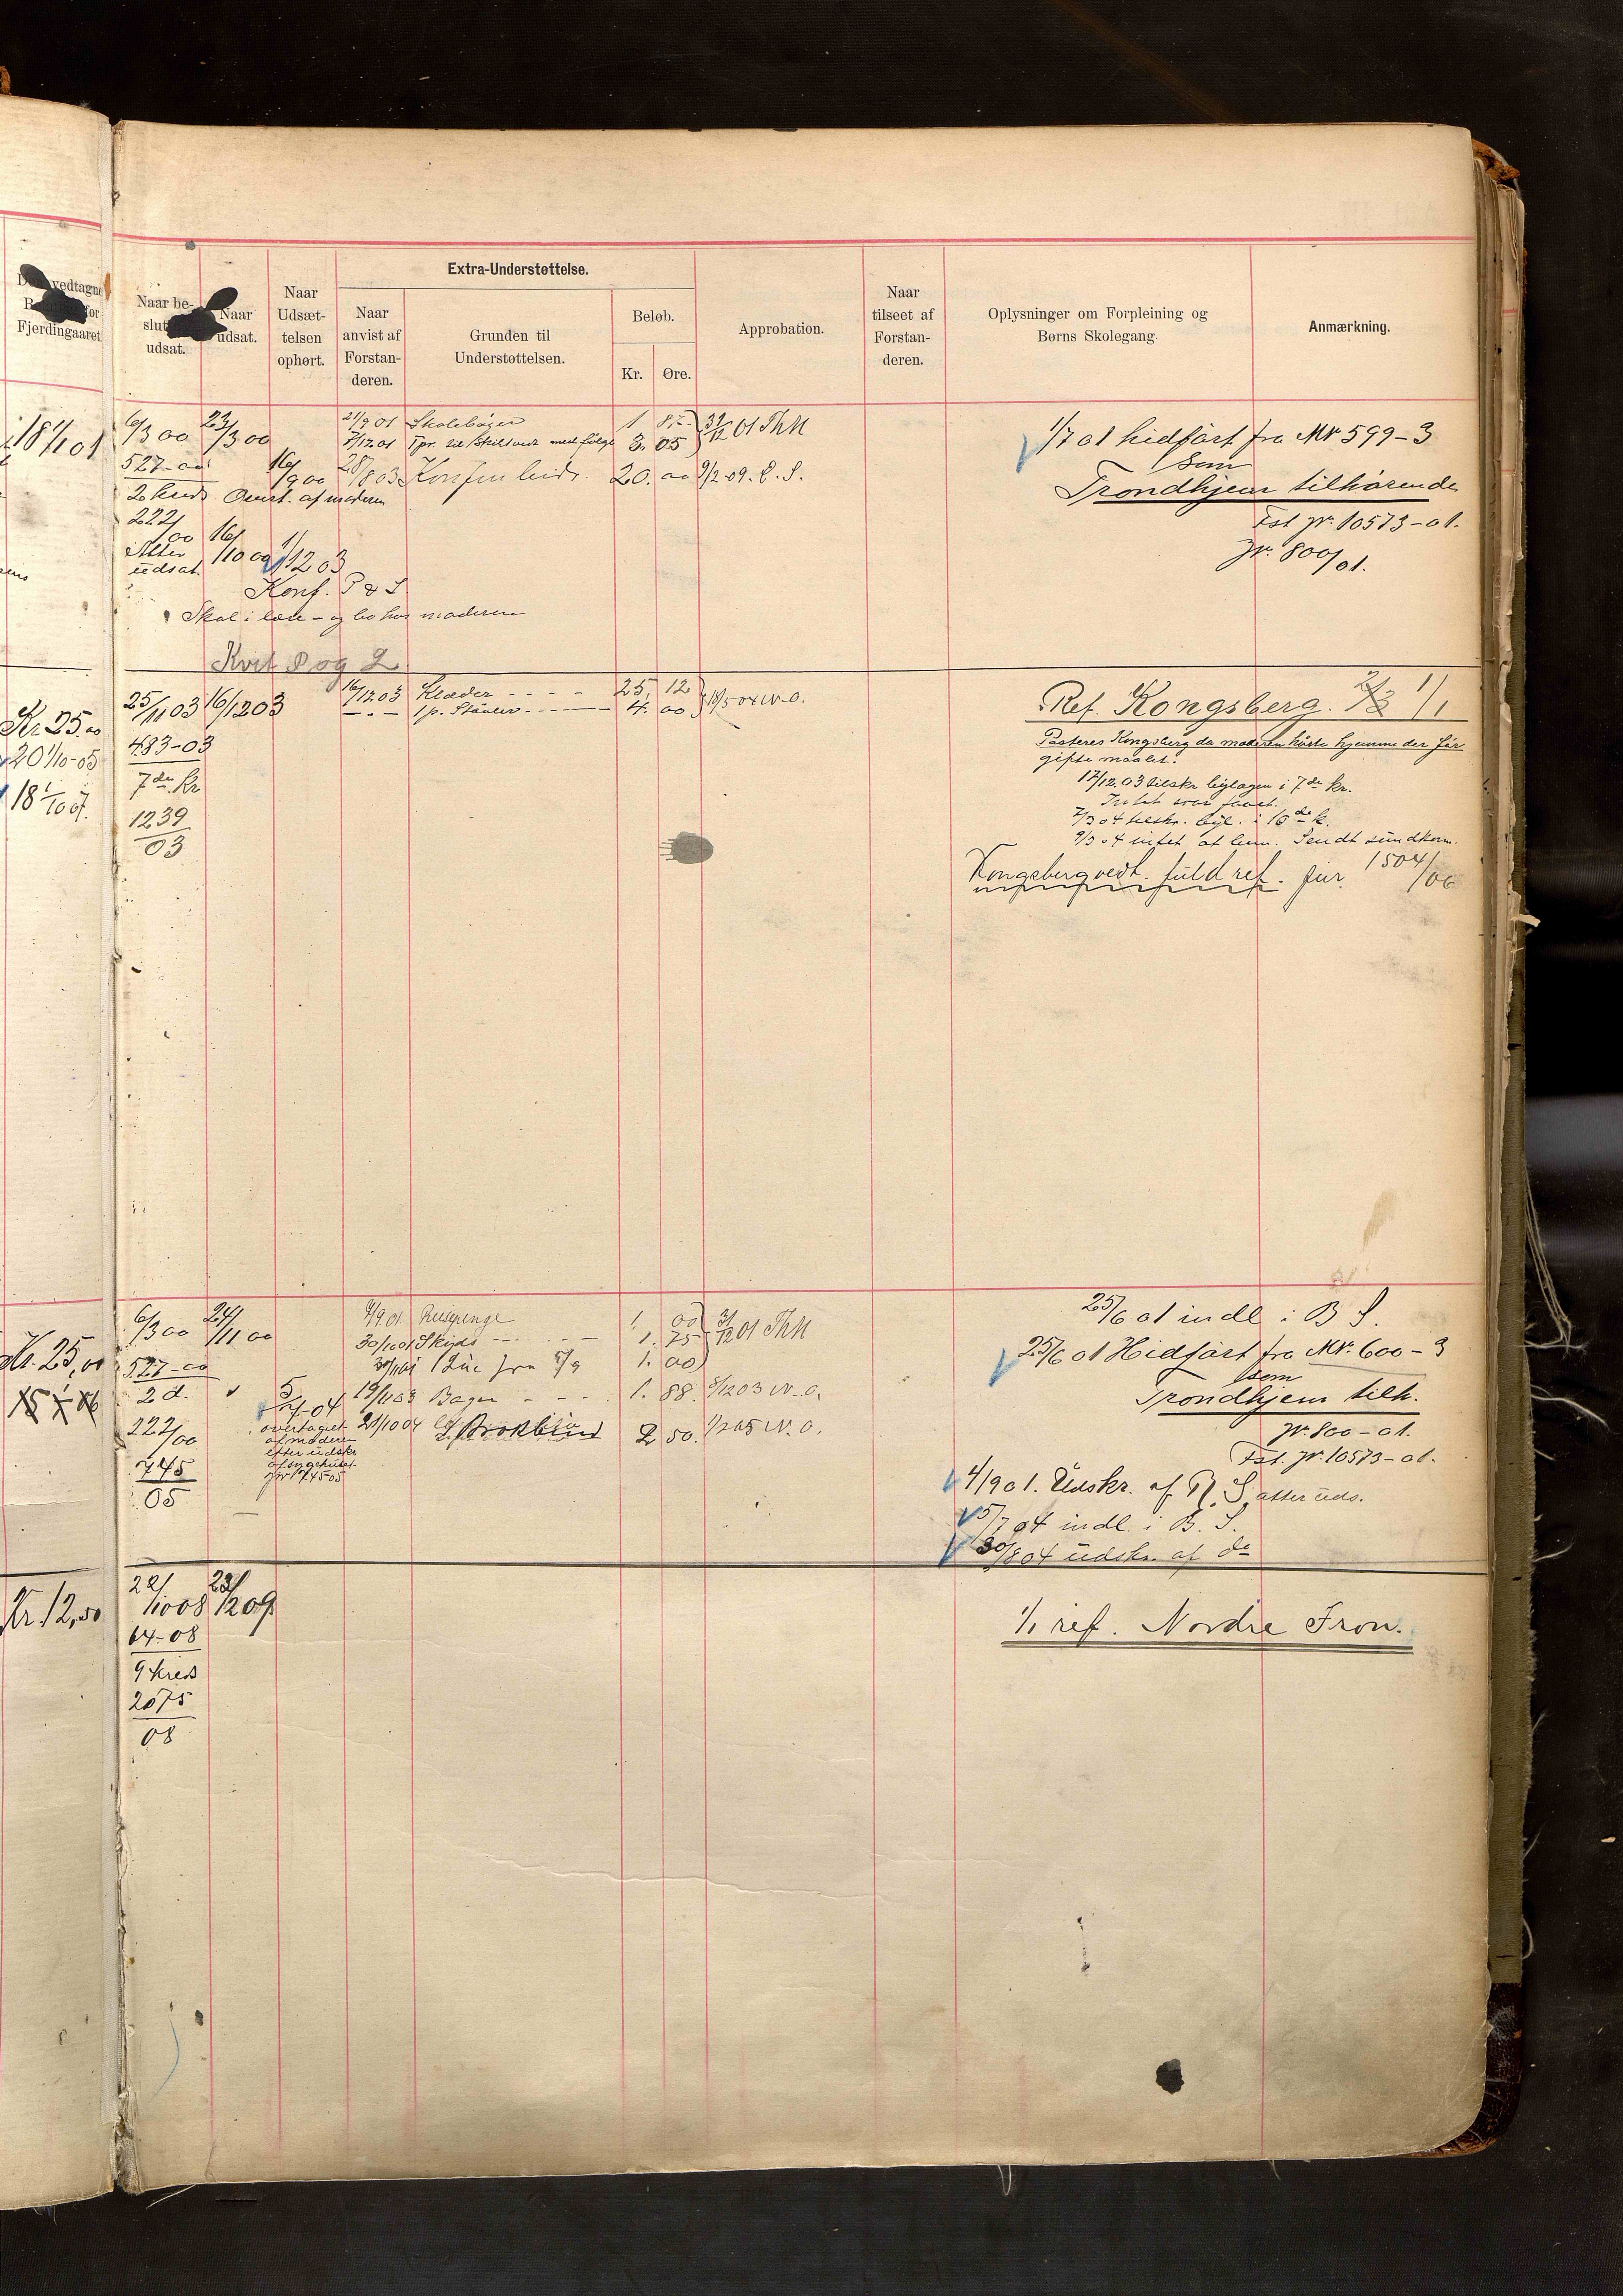 Extra-Understøttelse.
vedtagne
for
Fjerdingaaret
Naar be-
udsat.
Naar
udsat.
Naar
Udsæt-
telsen
ophørt.
Naar
anvist af
Forstan-
deren.
Grunden til
Understøttelsen.
Beløb.
Kr.
Øre.
Approbation.
Naar
tilseet af
Forstan-
deren.
Oplysninger om Forpleining og
Børns Skolegang.
Anmærkning.
18 1/1 01
6/3 00
23/3 00
21/9 01 Skolebøger 1
31/12 01 ThN
7/12 01 3. 05
527-00
16/9 00
28/8 03 20. 00 9/2 09.
2 kreds af moderen
222/00
16/10 00
1/12 03
Atter
udsat.
Konf. P & S
Skal i lære - og bo hos moderen
Kvit P og
1/7 01 hidført fra Nr 599-3
som
Trondhjem tilhørende
Fst jr. 10573-01.
Jr. 800/01.
Kr. 25.00
20 1/10-05
18 1/10 07.
25/11 03
16/12 03
16/12 03 Klæder 25. 12
1 p. Støvler 4. 00
483-03
7de Kr
1239
03
Ref. Kongsberg. 1/1
Posteres Kongsberg da moderen hørte hjemme der før
giftemaalet.
17/12 03 tilskr. i 7de kr.
Intet svar faaet.
7/3 04 tilskr. i 10de k.
9/3 04 intet at Sendt
Kongsberg vedt. fuld ref. jur. 1504/06
Kr. 25,00
6/3 00
24/11 00
4/9 01 Reisepenge 1. 00
31/12 01 ThN
30/10 01 Skjøs 1. 75
1 Lue fra 5/9 1. 00
527-00
2 d.
19/11 03 Bøger 1. 88. 8/12 03 N.O.
21/10 04 Brokbind 2 50. 1/2 05 N.O.
222/00
745
05
overtaget
af moderen
efter udskr
af sygehuset.
jr 745-05
25/6 01 indl i B S.
25/6 01 Hidført fra Nr. 600-3
som
Trondhjem tilh.
Jr. 800-01.
Fst. jr. 10573-01.
4/9 01. Udskr. af B. S. atter uds.
5/7 04 indl. i B. S.
30/8 04 udskr. af do
Kr. 12,50
22/10 08
23/2 09
64-08
9 kreds
2075
08
1/1 ref. Nordre Fron.